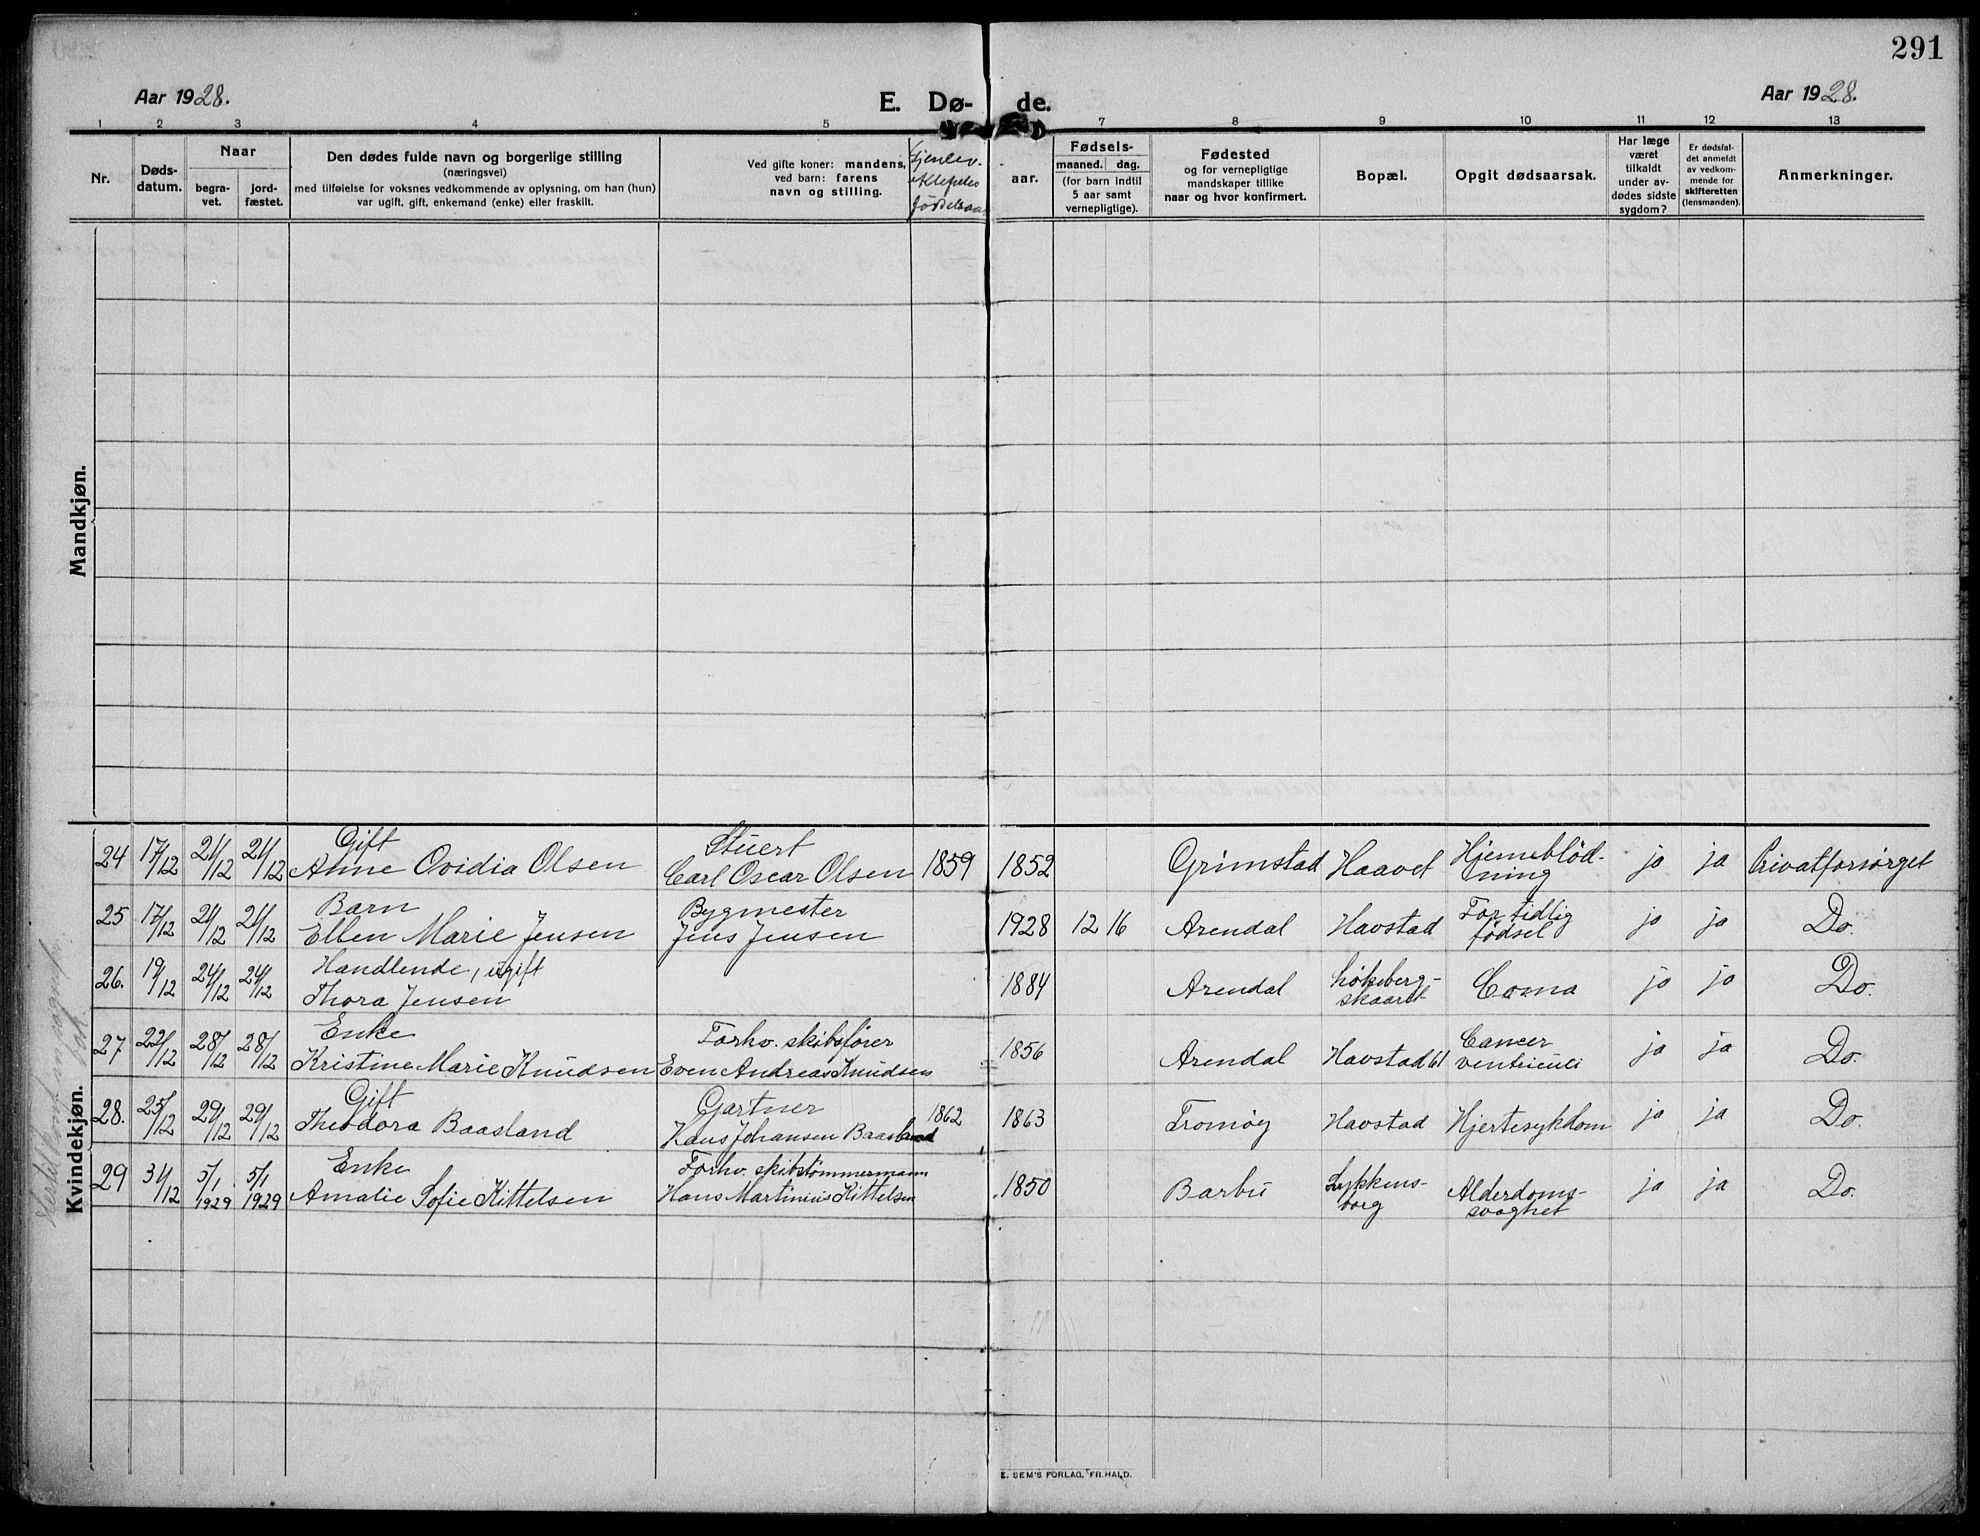 291
Aar 1928.
E. Dø- de.
Aar 1928.
1 2 3 4 5 7 8 9 10 11 12 13
Nr.
Døds-
datum.
Naar
begra-
vet.
jord-
fæstet.
Den dødes fulde navn og borgerlige stilling
(næringsvei)
med tilføielse for voksnes vedkommende av oplysning, om han (hun)
var ugift, gift, enkemand (enke) eller fraskilt.
Ved gifte koner: mandens,
ved barn: farens
navn og stilling.
Gjenlev.
fødselsaar
aar.
Fødsels-
maaned. dag.
(for barn indtil
5 aar samt
vernepligtige).
Fødested
og for vernepligtige
mandskaper tillike
naar og hvor konfirmert.
Bopæl.
Opgit dødsaarsak.
Har læge
været
tilkaldt
under av-
dødes sidste
sygdom?
Er dødsfal-
det anmeldt
av vedkom-
mende for
skifteretten
(lensmanden).
Anmerkninger.
Mandkjøn.
Kvindekjøn.
24 17/12 21/12 21/12 Gift Anne Ovidia Olsen Stuert Carl Oscar Olsen 1859 1852 Grimstad Haavet Hjerneblød-
ning ja ja Privatforsørget
25 17/12 21/12 21/12 Barn Ellen Marie Jensen Bygmester Jens Jensen 1928 12 16 Arendal Havstad For tidlig
fødsel ja ja Do.
26. 19/12 24/12 24/12 Handlende, ugift Thora Jensen 1884 Arendal Løkeberg-
skaaret Coma ja ja Do.
27 22/12 28/12 28/12 Enke Kristine Marie Knudsen Forhv. skibsfører Even Andreas Knudsen 1856 Arendal Havstad 61 Cancer
ventriculi ja ja Do.
28. 25/12 29/12 29/12 Gift Theodora Baasland Gartner Hans Johansen Baasland 1862 1863 Tromøy Havstad Hjertesykdom ja ja Do.
29 31/12 5/1 1929 5/1 1929 Enke Amalie Sofie Kittelsen Forhv. skibstømmermann Hans Martinius Kittelsen 1850 Barbu Lykkens-
borg Alderdoms-
svaghet ja ja Do.
E. SEM'S FORLAG, FR.HALD.